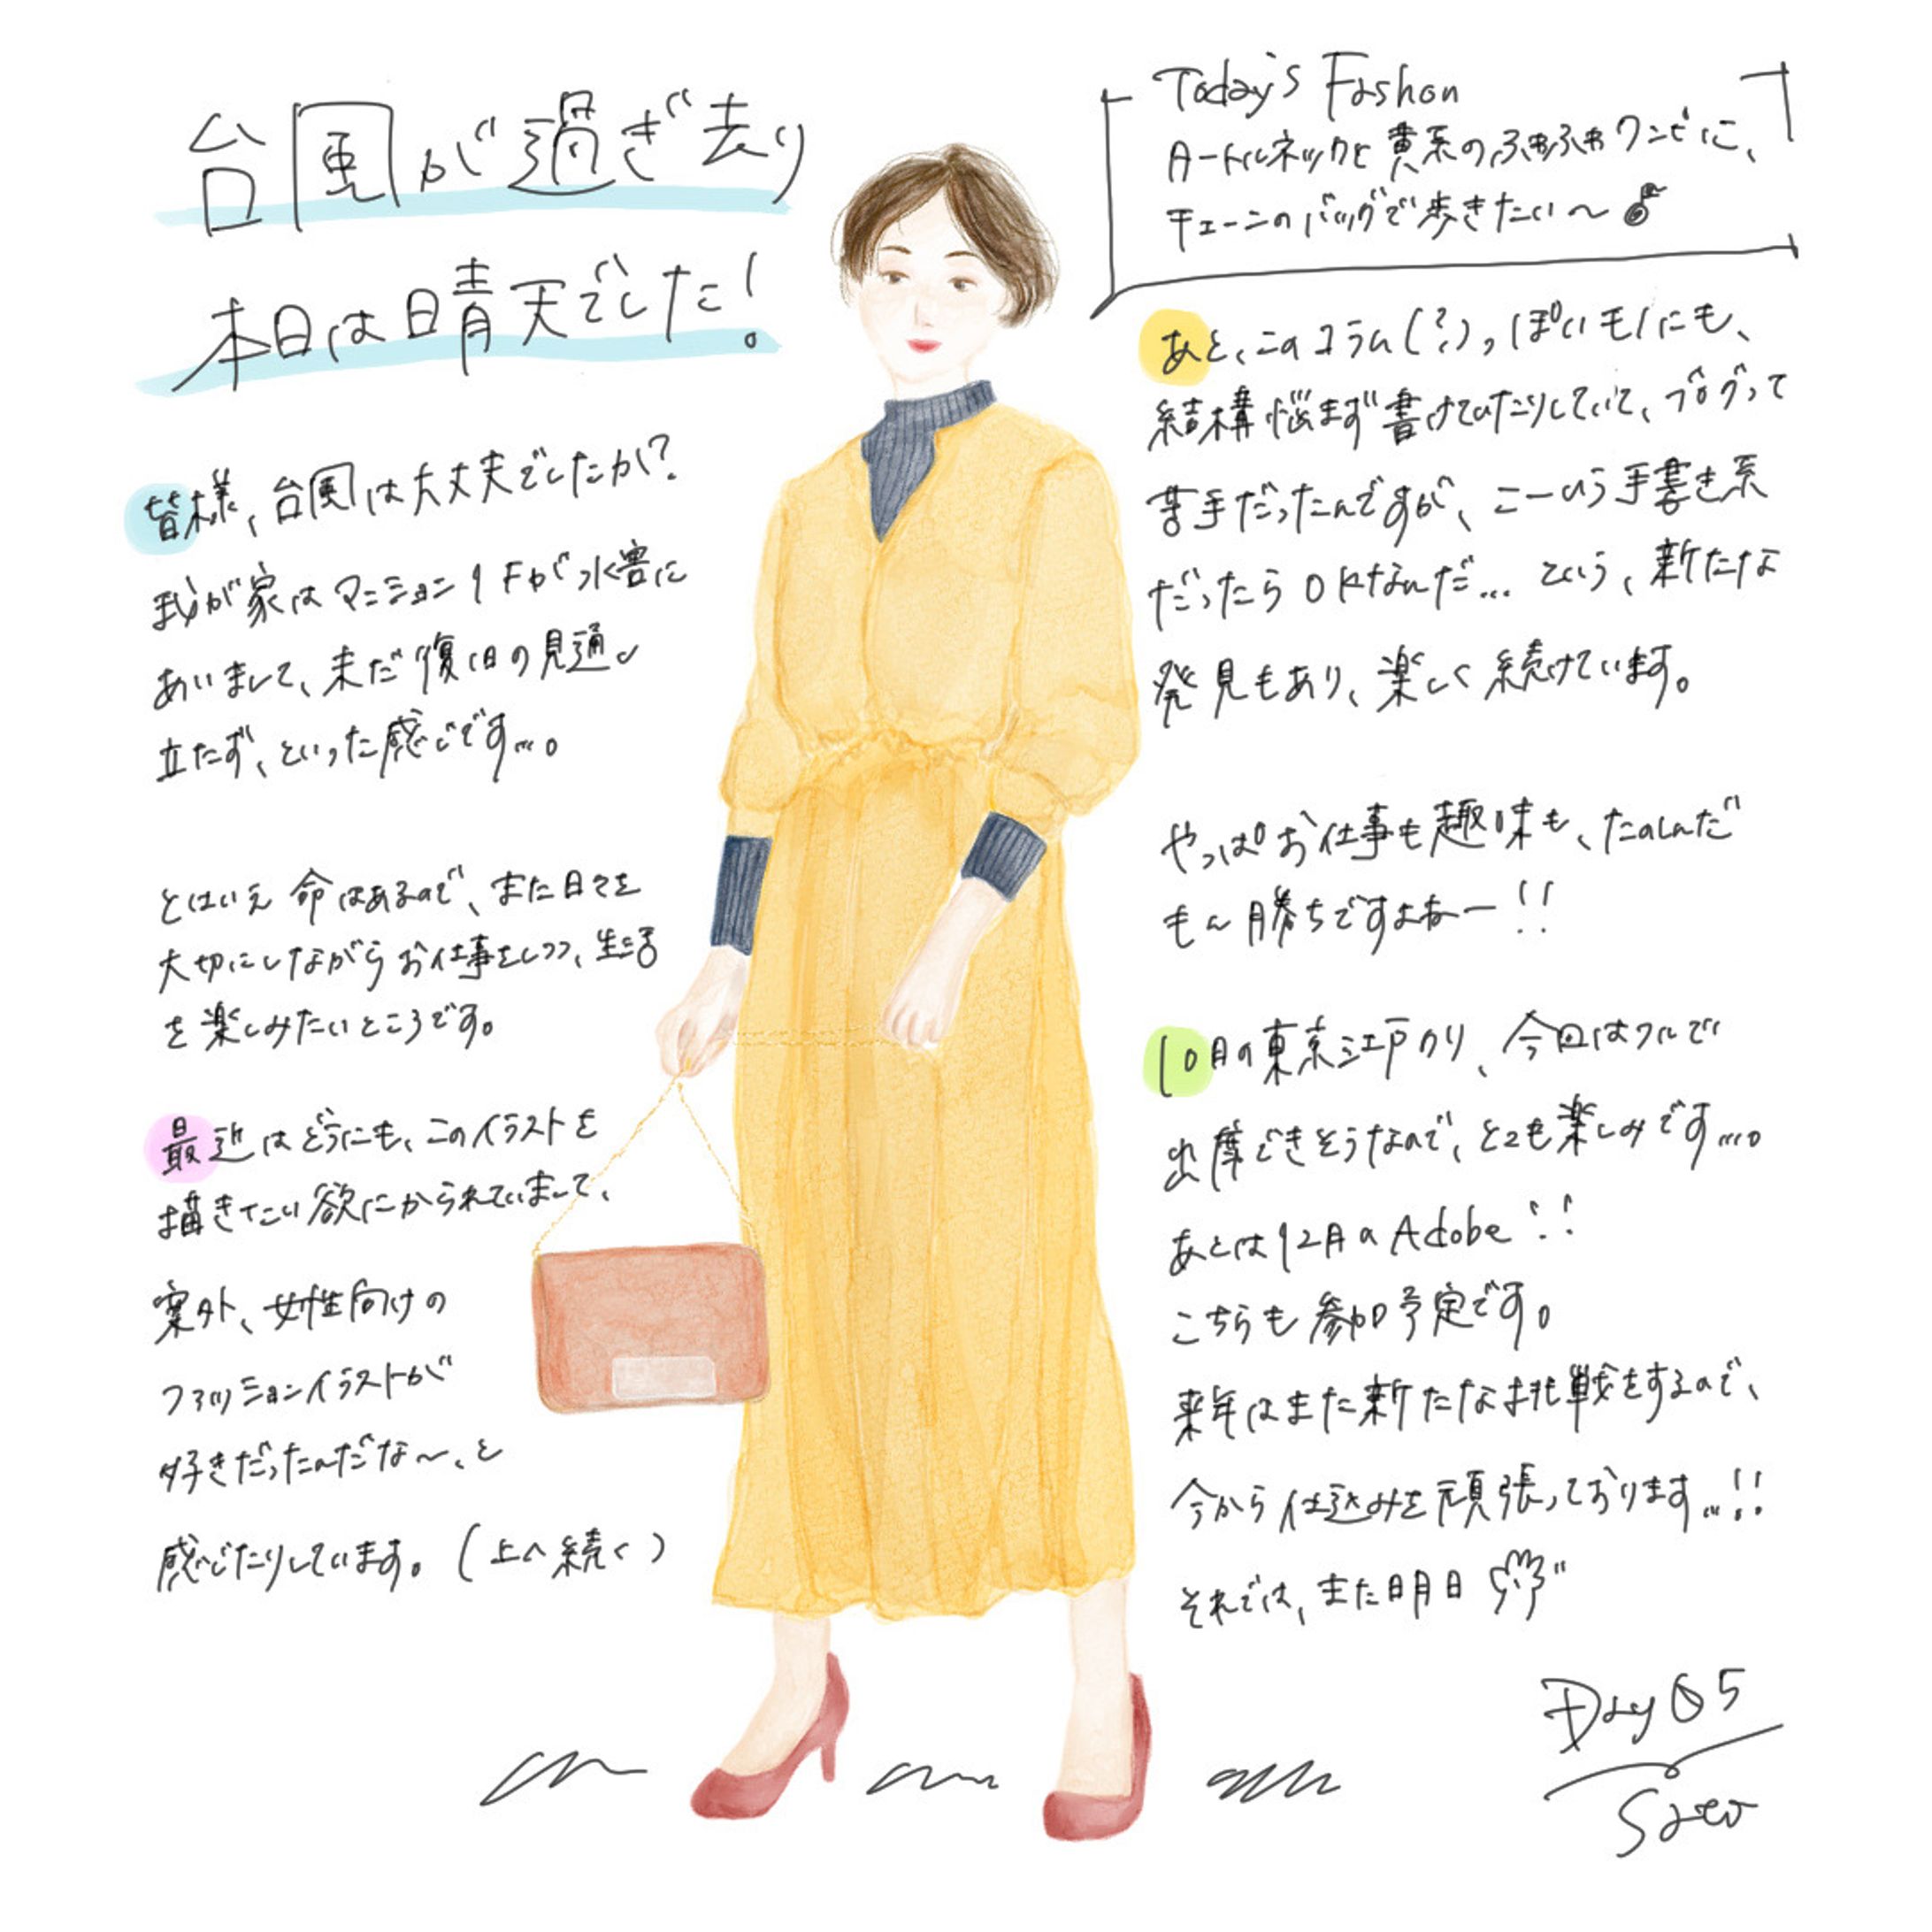 台風が過ぎ去り
本日は晴天でした!
皆様、台風は大丈夫でしたか?
我が家はマンション1Fが水害に
あいまして、未だ復旧の見通し
立たず、といった感じです…。
とはいえ命はあるので、また日々を
大切にしながらお仕事をしつつ、生活
を楽しみたいところです。
最近はどうにも、このイラストを
描きたい欲にかられていまして、
案外、女性向けの
ファッションイラストが
好きだったんだな〜、と
感じたりしています。(上へ続く)
Today's Fashon
タートルネックと黄系のふわふわワンピに、
チェーンのバッグで歩きたい〜
あと、このコラム(?)っぽいモノにも、
結構悩まず書けていたりしていて、ブログって
苦手だったんですが、こーいう手書き系
だったらOKなんだ…という、新たな
発見もあり、楽しく続けています。
やっぱお仕事も趣味も、たのしんだ
もん勝ちですよねー!!
10月の東京江戸クリ、今回はフルで
出席できそうなので、とても楽しみです…。
あとは12月のAdobe!!
こちらも参加予定です。
来年はまた新たな挑戦をするので、
今から仕込みを頑張っております…!!
それでは、また明日
Day 05